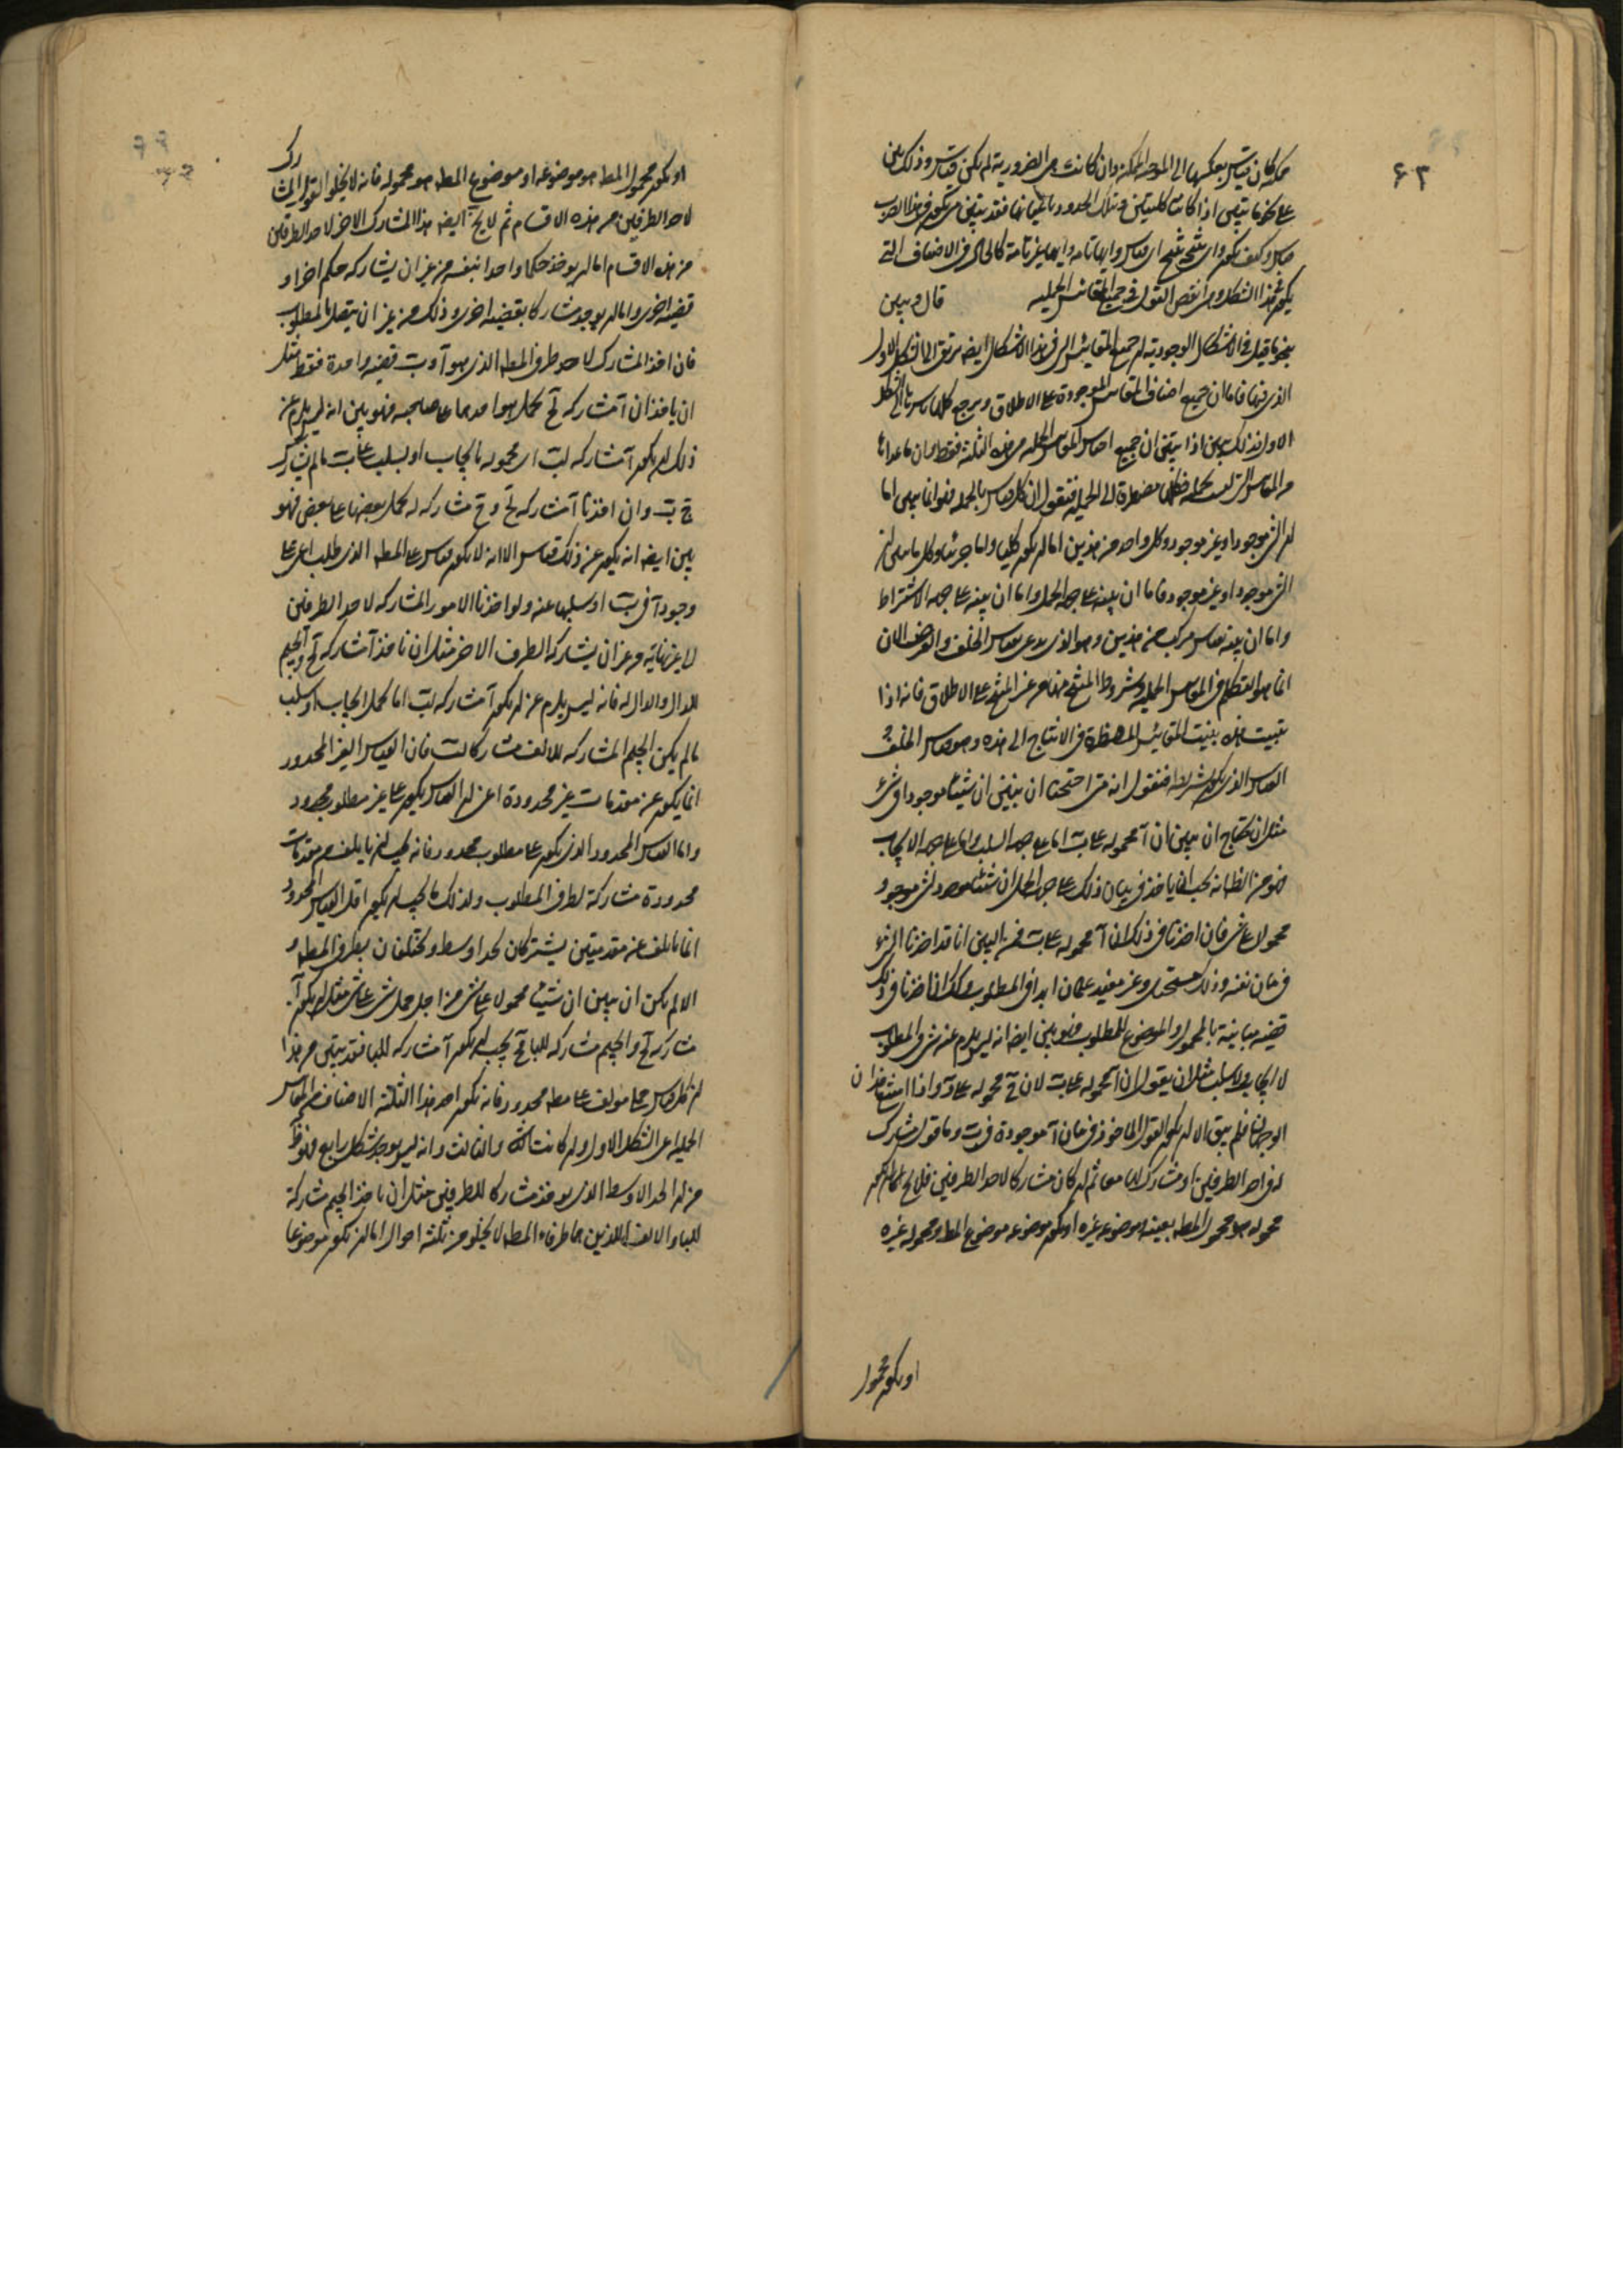 ۶۳
ممكنة كان قياس بعكسها الى الموجبة الممكنة وان كانت من الضرورية لم يكن قياس وذلك بين
على نحو ما تبين اذا كانتا كليتين وتلك الحدود باعيانها فقد تبين متى يكون في هذا الضرب
قياس وكيف يكون واى شئ ينتج اى قياس وايها تامة وايها غير تامة كالحال في الاصناف التي
يكون في هذا الشكل ومن انقص القول في جميع المقائيس الحملية قال وبين
بنحو ما قيل في الاشكال الوجودية ان جميع المقائيس التي في هذا الاشكال ايضه ترتقى الى الشكل الاول
الذي فيها فاما ان جميع اصناف المقائيس الموجودة على الاطلاق ويرجع كلها الى الشكل
الاول فذلك يبين اذا تبين ان جميع المقاييس الحملية هي هذه الثلثة فقط وان ما عداها
من المقاييس التي ليست بحملية فكلها مضطرة الى الحملية فنقول ان كل قياس بالجملة فهو انما يبين اما
ان الشئ موجود او غير موجود وكل واحد من هذين اما ان يكون كليا واما جزئيا وكل ما يبين ان
الشئ موجود او غير موجود فاما ان يبينه على جهة الحمل واما ان يبينه على جهة الاشتراط
واما ان يبينه بقياس مركب من هذين وهو الذي يدعى بقياس الخلف والغرض الان
انما هو التكلم في المقاييس الحملية وشروط المنتج منها من غير المنتج على الاطلاق فانه اذا
تبينت هذه تبينت المقائيس المضطرة في الانتاج الى هذه وهو قياس الخلف و
القياس الذي يكون بشريطة فنقول انه متى احتجنا ان نبين ان شيئا موجودا في شئ
مثل ان نحتاج ان نبين ان آ محمولة على ب اما على جهة السلب واما على جهة الايجاب
فهو من الظاهر انه يجب ان ياخذ في بيان ذلك على جهة الحمل ان شيئا موجود لشئ موجود
محمولا على شئ فان اخذنا في ذلك ان آ محمولة على ب فمن البين انا قد اخذنا الشئ
في بيان نفسه وذلك مستحيل وغير مفيد علما ابدا في المطلوب وكك ان اخذنا في ذلك
قضية مباينة بالمحمول والموضوع للمطلوب فهو بين ايضا انه ليس يلزم عنه شئ في المطلوب
لا ايجاب ولا سلب مثل ان يقول ان آ محمولة على ب لان ج محمولة على د واذا امتنع هذان
الوجهان فلم يبق الا ان يكون القول الماخوذ في بيان آ موجودة في ب وما قول مشارك
له في احد الطرفين او مشارك لهما معا ثم ان كان مشاركا لاحد الطرفين فلا يخ اما ان يكون
محموله هو محمول المطه بعينه وموضوعه غيره او يكون موضوعه موضوع المطه ومحموله غيره
او يكون محمول
او يكون محمول المطه هو موضوعه او موضوع المطه هو محموله فانه لا يخلو القول المشارك
لاحد الطرفين من هذه الاقسام ثم لا يخ ايضه هذا المشارك الاخر لاحد الطرفين
من هذه الاقسام اما ان يوخذ حكما واحدا بنفسه من غير ان يشاركه حكم اخر او
قضية اخرى واما ان يوجد مشاركا بقضية اخرى وذلك من غير ان يتصل بالمطلوب
فان اخذ المشارك لاحد طرفي المطه الذي هو آ و ب قضية واحدة فقط مثل
ان ياخذ ان آ مشاركة لج بحمل هو احدهما على صاحبه فهو بين انه ليس يلزم عن
ذلك ان يكون آ مشاركه لب اى محمولة بالايجاب او بسلب على ب ما لم يشارك
ج ب وان اخذنا آ مشاركه لج و ج مشاركه له بحمل بعضها على بعض فهو
بين ايضه انه يكون عن ذلك قياس الا انه لا يكون قياس على المطه الذي طلب اعى على
وجود آ في ب او سلبها عنه ولو اخذنا الامور المشاركه لاحد الطرفين
الى غير نهاية من غير ان يشارك الطرف الاخر مثل ان ناخذ آ مشاركه لج والجيم
للدال والدال له فانه ليس يلزم عنه ان يكون آ مشاركه لب اما بحمل ايجاب او سلب
ما لم يكن الجيم المشاركه للالف مشاركا لب فان القياس الغير المحدود
انما يكون عن مقدمات غير محدودة اعنى ان القياس يكون على غير مطلوب محدود
واما القياس المحدود الذي يكون على مطلوب محدود فانه يجب ان ياتلف من مقدمات
محدودة مشاركة لطرفي المطلوب ولذلك ما يجب ان يكون اقل القياس المحدود
انما ياتلف عن مقدمتين يشتركان لحد اوسط ويختلفان بطرفي المطه و
الا لم يكن ان يبين ان شيئا محمول على شئ من اجل حمل شئ على شئ مثل ان يكون آ
مشاركه لج والجيم مشاركه للبا فج يجب ان يكون آ مشاركه للبا فقد تبين من هذا
ان كل قياس حملى مولف على مطه محدود فانه يكون احد هذا الثلثة الاصناف من المقاييس
الحملية اعى الشكل الاول او ان كانت الثانى والثالث وانه ليس يوجد شكل رابع وذلك
من ان الحد الاوسط الذي يوخذ مشاركا للطرفين مثل ان ياخذ الجيم مشاركة
للبا والالف اللذين هما طرفاء المطه لا يخلو من ثلثه احوال اما ان يكون موضوعا